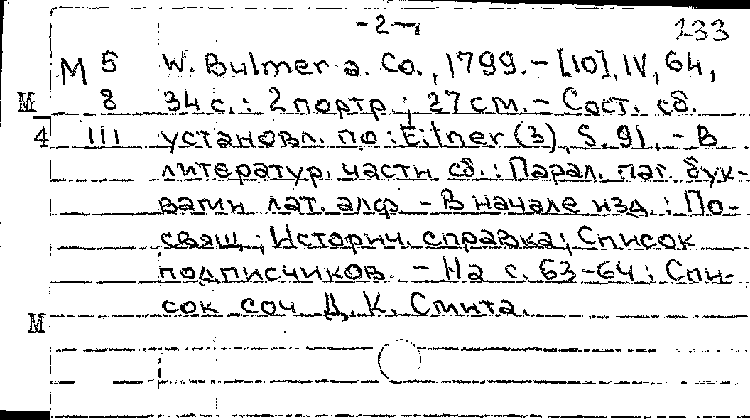 -2- 233
М 5 W. Bulmer a. Co., 1799. - [10], IV, 64,
М 8 34 с.: 2 портр.; 27 см. - Сост. сб.
4 III установл. по: Eitner (3), S. 91. - В
литератур. части сб.: Парал. паг. бук-
вами лат. алф. - В начале изд.: По-
свящ.; Историч. справка; Список
подписчиков. - На с. 63-64: Спи-
сок соч Д. К. Смита.
М